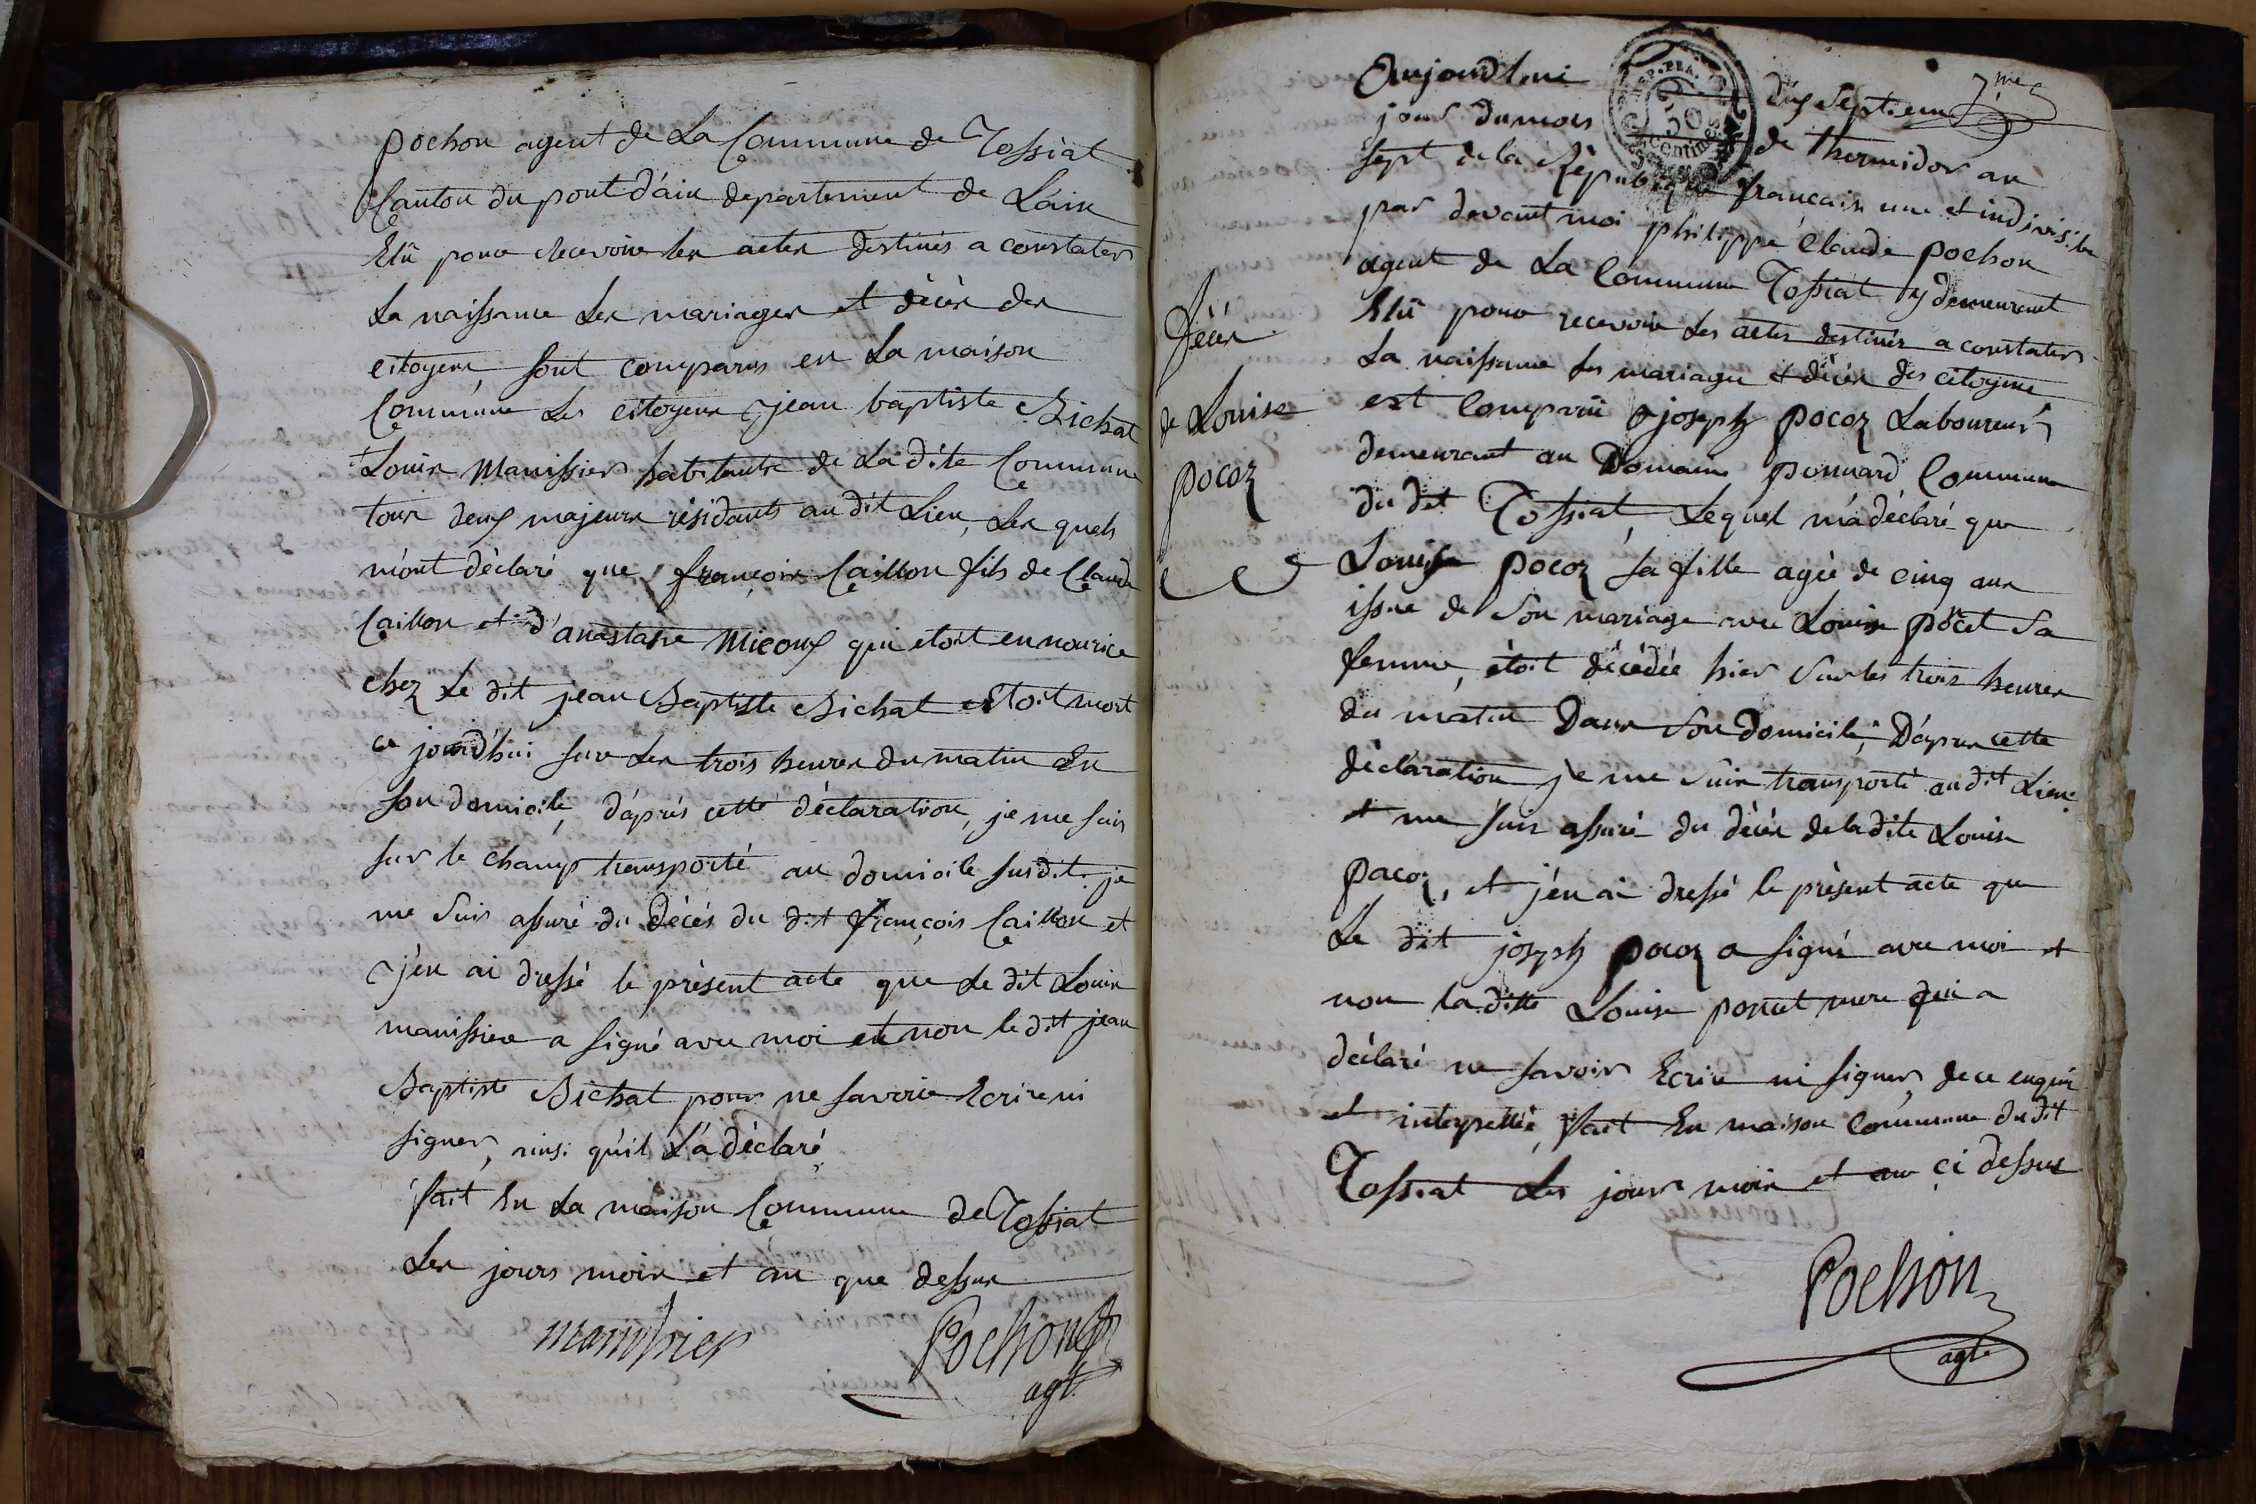 pochon agent de La Commune de Tossiat
Canton du pont d'ain departement de L'ain
Elû pour Recevoir les actes destinés a constater
La naissance Les mariages et décès des
citoyens, sont comparus en La maison
Commune Les citoyens jean baptiste Bichat
Louis Manissier habitants de La dite Commune
tous deux majeurs résidants au dit Lieu, Les quels
m'ont déclaré que françois Caillon fils de Claude
Caillon et d'anastasie Micoux qui etoit en nourice
chez Le dit jean Baptiste Bichat etoit mort
ce jourd'hui sur Les trois heures du matin En
son domicile, d'après cette déclaration, je me suis
sur le champ transporté au domicile susdit. je
me suis assuré du Décès du dit françois Caillon et
j'en ai dressé le présent acte que Le dit Louis
manissier a signé avec moi et non le dit jean
Baptiste Bichat pour ne savoir Ecrire ni
signer, ainsi qu'il L'a déclaré
fait En La maison Commune de Tossiat
Les jours mois et an que dessus
manissier Pochon
agt
Aujourd'hui dix septieme 7me
jour du mois de thermidor an
sept de la République français une et indivisible
par devant moi philippe Claude pochon
agent de La Commune Tossiat y demeurant
Elû pour recevoir Les actes destinés a constater
La naissance les mariages et décès des citoyens
est Comparû joseph pocoz Laboureur
demeurant au Domaine ponnard Commune
du dit Tossiat, Lequel m'a déclaré que
Louise pocoz sa fille agée de cinq ans
issue de son mariage avec Louise poncet sa
femme, étoit décédée hier sur les trois heures
du matin Dans son domicile, D'apres cette
déclaration je me suis transporté au dit Lieu
et me suis assuré du décès de la dite Louise
pacoz, et j'en ai dressé le présent acte que
Le dit joseph pocoz a signé avec moi et
non la ditte Louise poncet mere qui a
déclaré ne savoir Ecrire ni signer, de ce enquis
et interpellée, fait En maison Commune du dit
Tossiat Les jours mois et an ci dessus
Pochon
agt
Décès
de Louise
pocoz
REP. FRA.
50
centimes